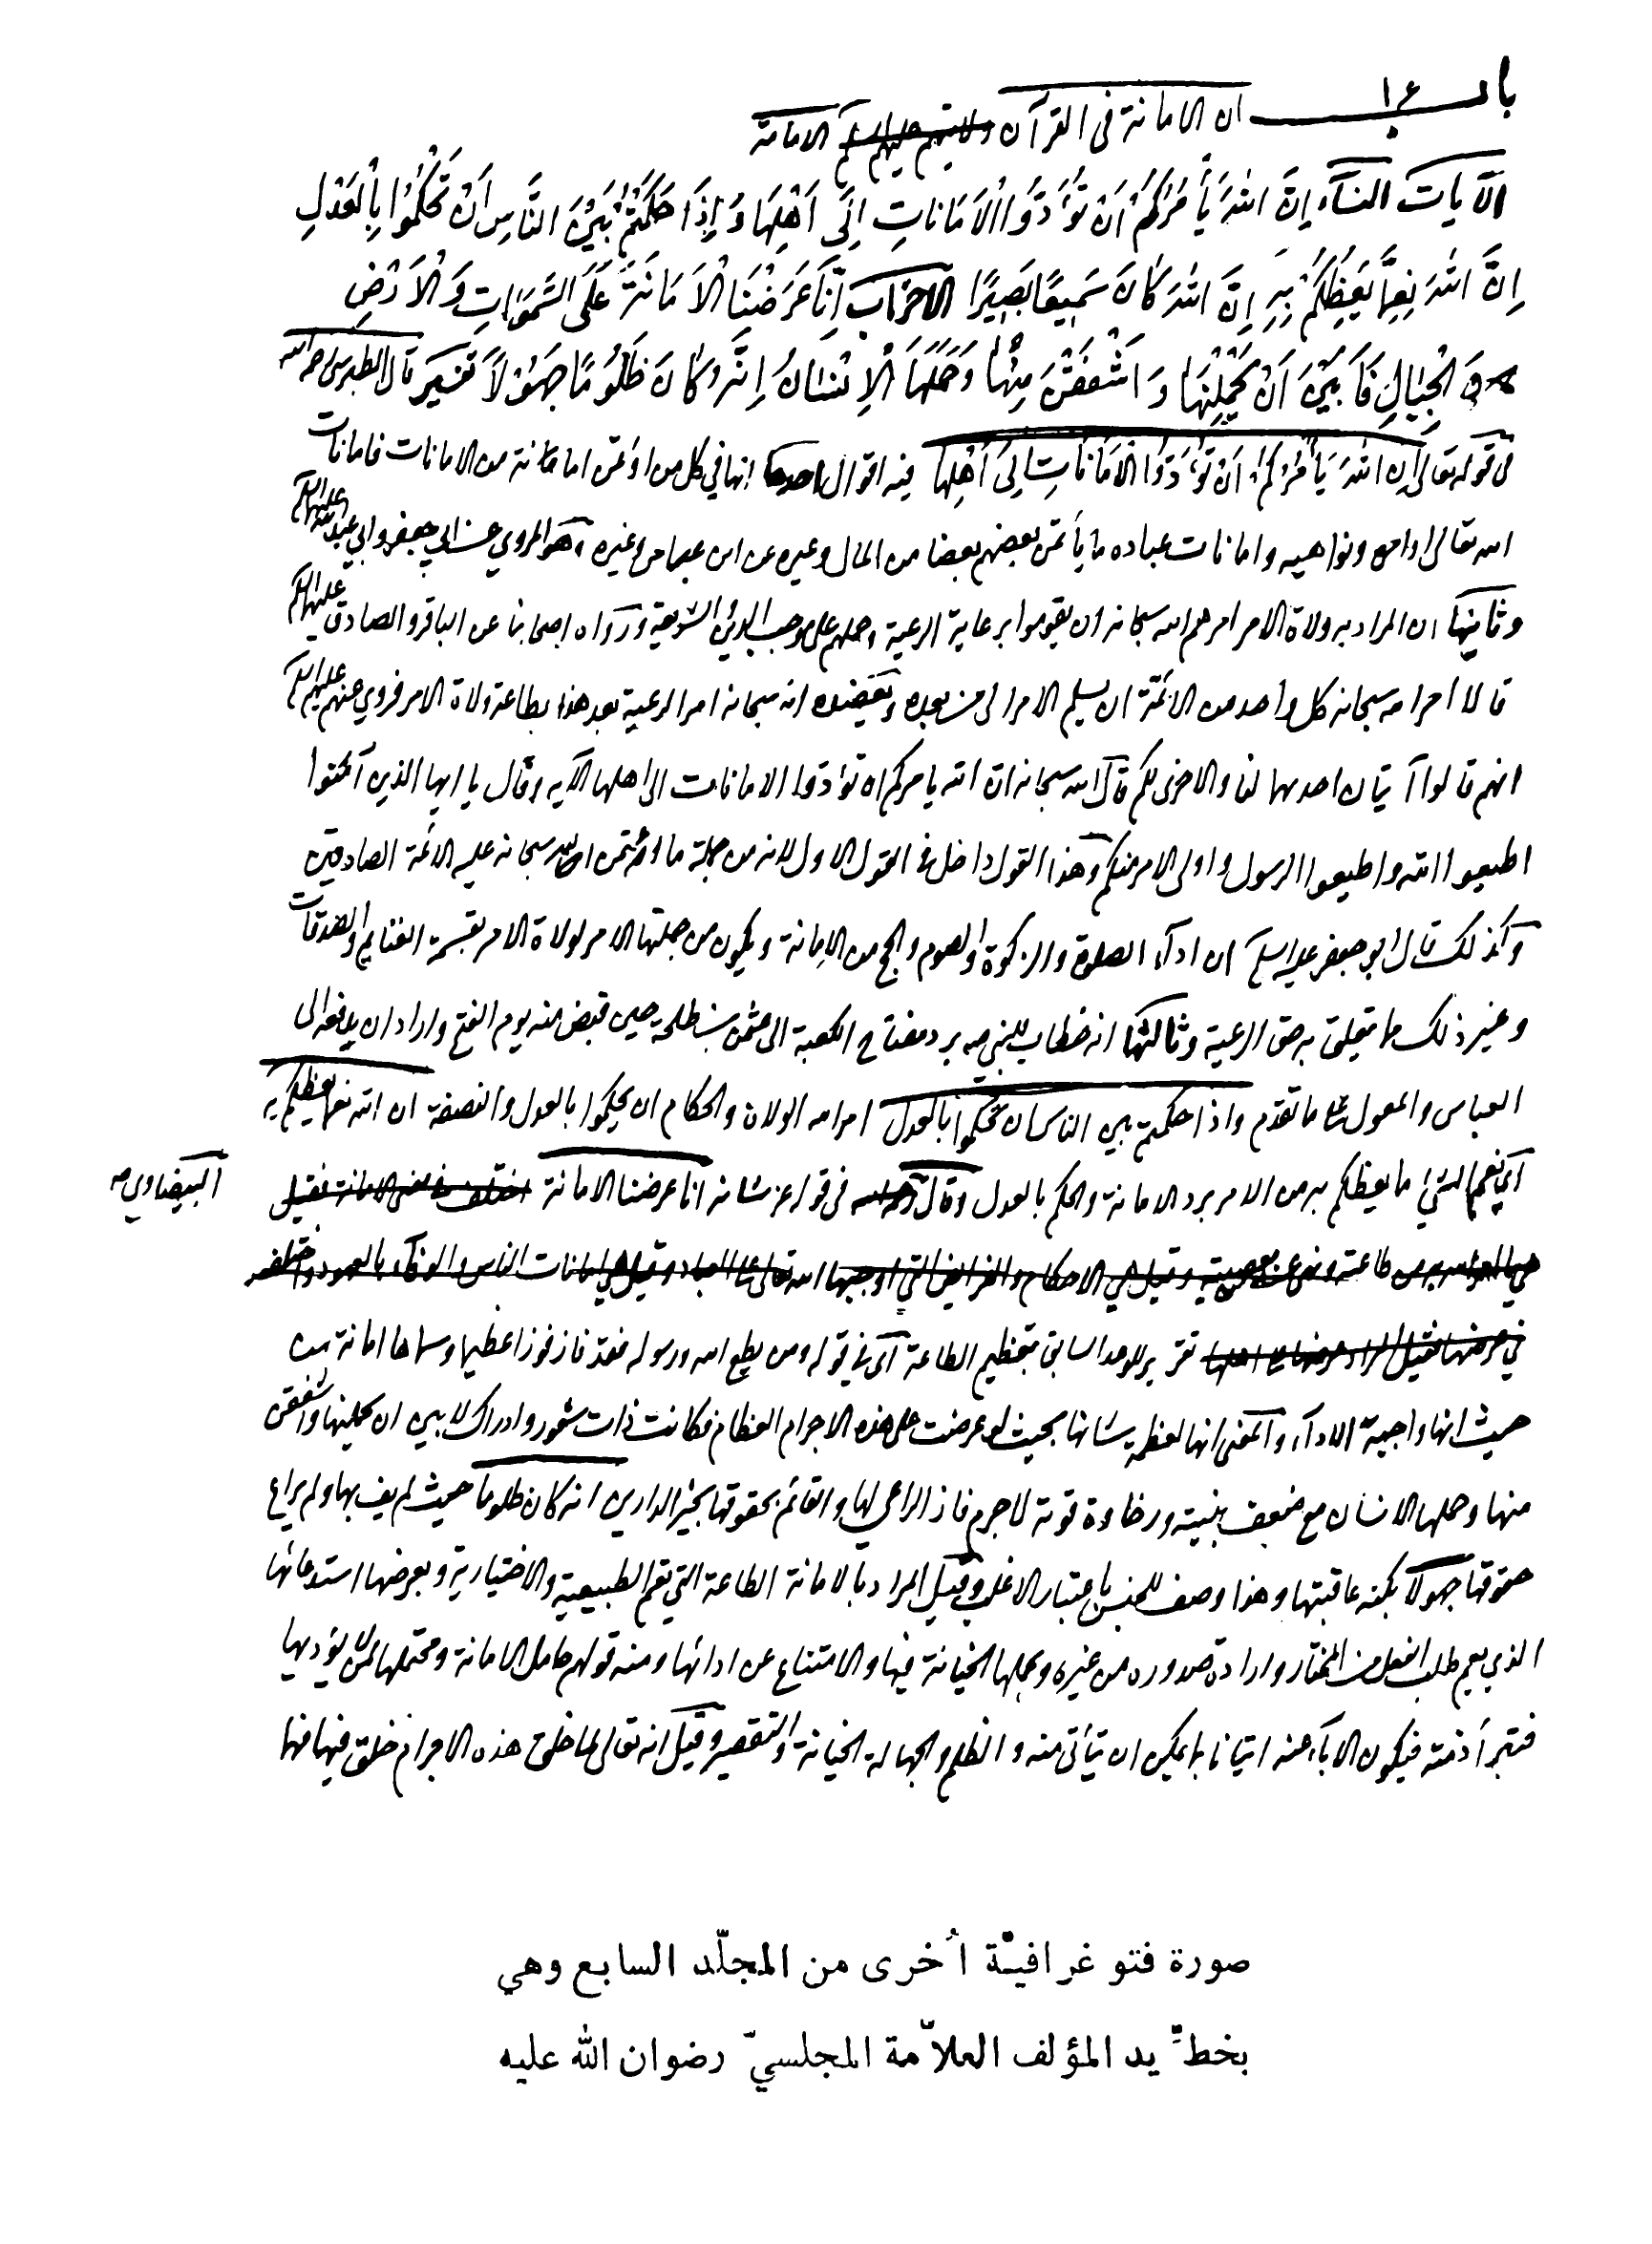 باب ١٤ ان الامانة في القرآن ولايتهم عليهم السلم الامامة
الآيات النسآء إِنَّ اللهَ يَأْمُرُكُمْ أَنْ تُؤَدُّوا الْأَمَانَاتِ إِلَى أَهْلِهَا وَإِذَا حَكَمْتُمْ بَيْنَ النَّاسِ أَنْ تَحْكُمُوا بِالْعَدْلِ
إِنَّ اللهَ نِعِمَّا يَعِظُكُمْ بِهِ إِنَّ اللهَ كَانَ سَمِيعًا بَصِيرًا الاحزاب إِنَّا عَرَضْنَا الْأَمَانَةَ عَلَى السَّمَوَاتِ وَالْأَرْضِ
وَالْجِبَالِ فَأَبَيْنَ أَنْ يَحْمِلْنَهَا وَأَشْفَقْنَ مِنْهَا وَحَمَلَهَا الْإِنْسَانُ إِنَّهُ كَانَ ظَلُومًا جَهُولًا تفسير قال الطبرسي رحمه الله
في قوله تعالى إِن اللهَ يَأْمُرُكُمْ أَنْ تُؤَدُّوا الْأَمَانَاتِ إِلَى أَهْلِهَا فيه اقوال احدها انها في كل من اؤتمن امانة من الامانات فامانات
الله تعالى اوامره ونواهيه وامانات عباده ما يأتمن بعضهم بعضا من المال وغيره عن ابن عباس وغيره وهو المروي عن ابي جعفر وابي عبد الله عليهما السلم
وثانيها ان المراد به ولاة الامر امرهم الله سبحانه ان يقوموا برعاية الرعية وحملهم على موجب الدين والشريعة ورواه اصحابنا عن الباقر والصادق عليهما السلم
قالا امر الله سبحانه كل واحد من الائمّة ان يسلم الامر الى من بعده ويعضده انه سبحانه امر الرعية بعد هذا بطاعة ولاة الامر فروي عنهم عليهم السلم
انهم قالوا آيتان احدهما لنا والاخرى لكم قال الله سبحانه ان الله يامركم ان تؤدوا الامانات الى اهلها الآية وقال يا ايها الذين آمنوا
اطيعوا الله واطيعوا الرسول واولى الامر منكم وهذا القول داخل في القول الاول لانه من جملة ما ائتمن الله سبحانه عليه الائمة الصادقين
وكذلك قال ابو جعفر عليه السلم ان ادآء الصلوة والزكوة والصوم والحج من الامانة ويكون من جملتها الامر لولاة الامر بقسمة الغنايم والصدقات
وغير ذلك مما يتعلق به حق الرعية وثالثها انه خطاب للنبي ص برد مفتاح الكعبة الى عثمن بن طلحة حين قبض منه يوم الفتح واراد ان يدفعه الى
العباس والمعول على ما تقدّم واذا حكمتم بين الناس ان تحكموا بالعدل امر الله الولاة والحكام ان يحكموا بالعدل والنصفة ان الله نعما يعظكم به
اي نعم الشئ ما يعظكم به من الامر برد الامانة والحكم بالعدل وقال رحمه الله في قوله عز شانه انا عرضنا الامانة اختلف في معنى الامانة فقيل البيضاوي
هي ما امر الله به من طاعته ونهى عنه من معصيته وقيل هي الاحكام والفرايض التي اوجبها الله تعالى على العباد وقيل هي امانات الناس والوفآء بالعهود واختلف
في عرضها فقيل المراد عرضها على اهلها تقرير للوعد السابق بتعظيم الطاعة اى في قوله ومن يطع الله ورسوله فقد فاز فوزا عظيما وسماها امانة من
حيث انها واجبة الادآء والمعنى انها لعظمة شانها بحيث لو عرضت على هذه الاجرام العظام فكانت ذات شعور وادراك لابين ان يحملنها واشفقن
منها وحملها الانسان مع ضعف بنيته ورخاوة قوته لا جرم فاز الراعي لها والقائم بحقوقها بخير الدارين انه كان ظلوما حيث لم يف بها ولم يراع
حقوقها جهولا بكنه عاقبتها وهذا وصف للجنس باعتبار الاغلب وقيل المراد بالامانة الطاعة التي تعم الطبيعية والاختيارية وبعرضها استدعائها
الذي يعم طلب الفعل من المختار وارادة صدوره من غيره وبحملها الخيانة فيها والامتناع عن ادائها ومنه قولهم حامل الامانة ومحتملها لمن لا يؤديها
فتبرأ ذمته فيكون الابآء عنه اتيانا بما يمكن ان يتأتى منه والظلم والجهالة الخيانة والتقصير وقيل انه تعالى لما خلق هذه الاجرام خلق فيها فهما
صورة فتو غرافيّة أُخرى من المجلّد السابع وهي
بخطّ يد المؤلف العلاّمة المجلسيّ رضوان الله عليه